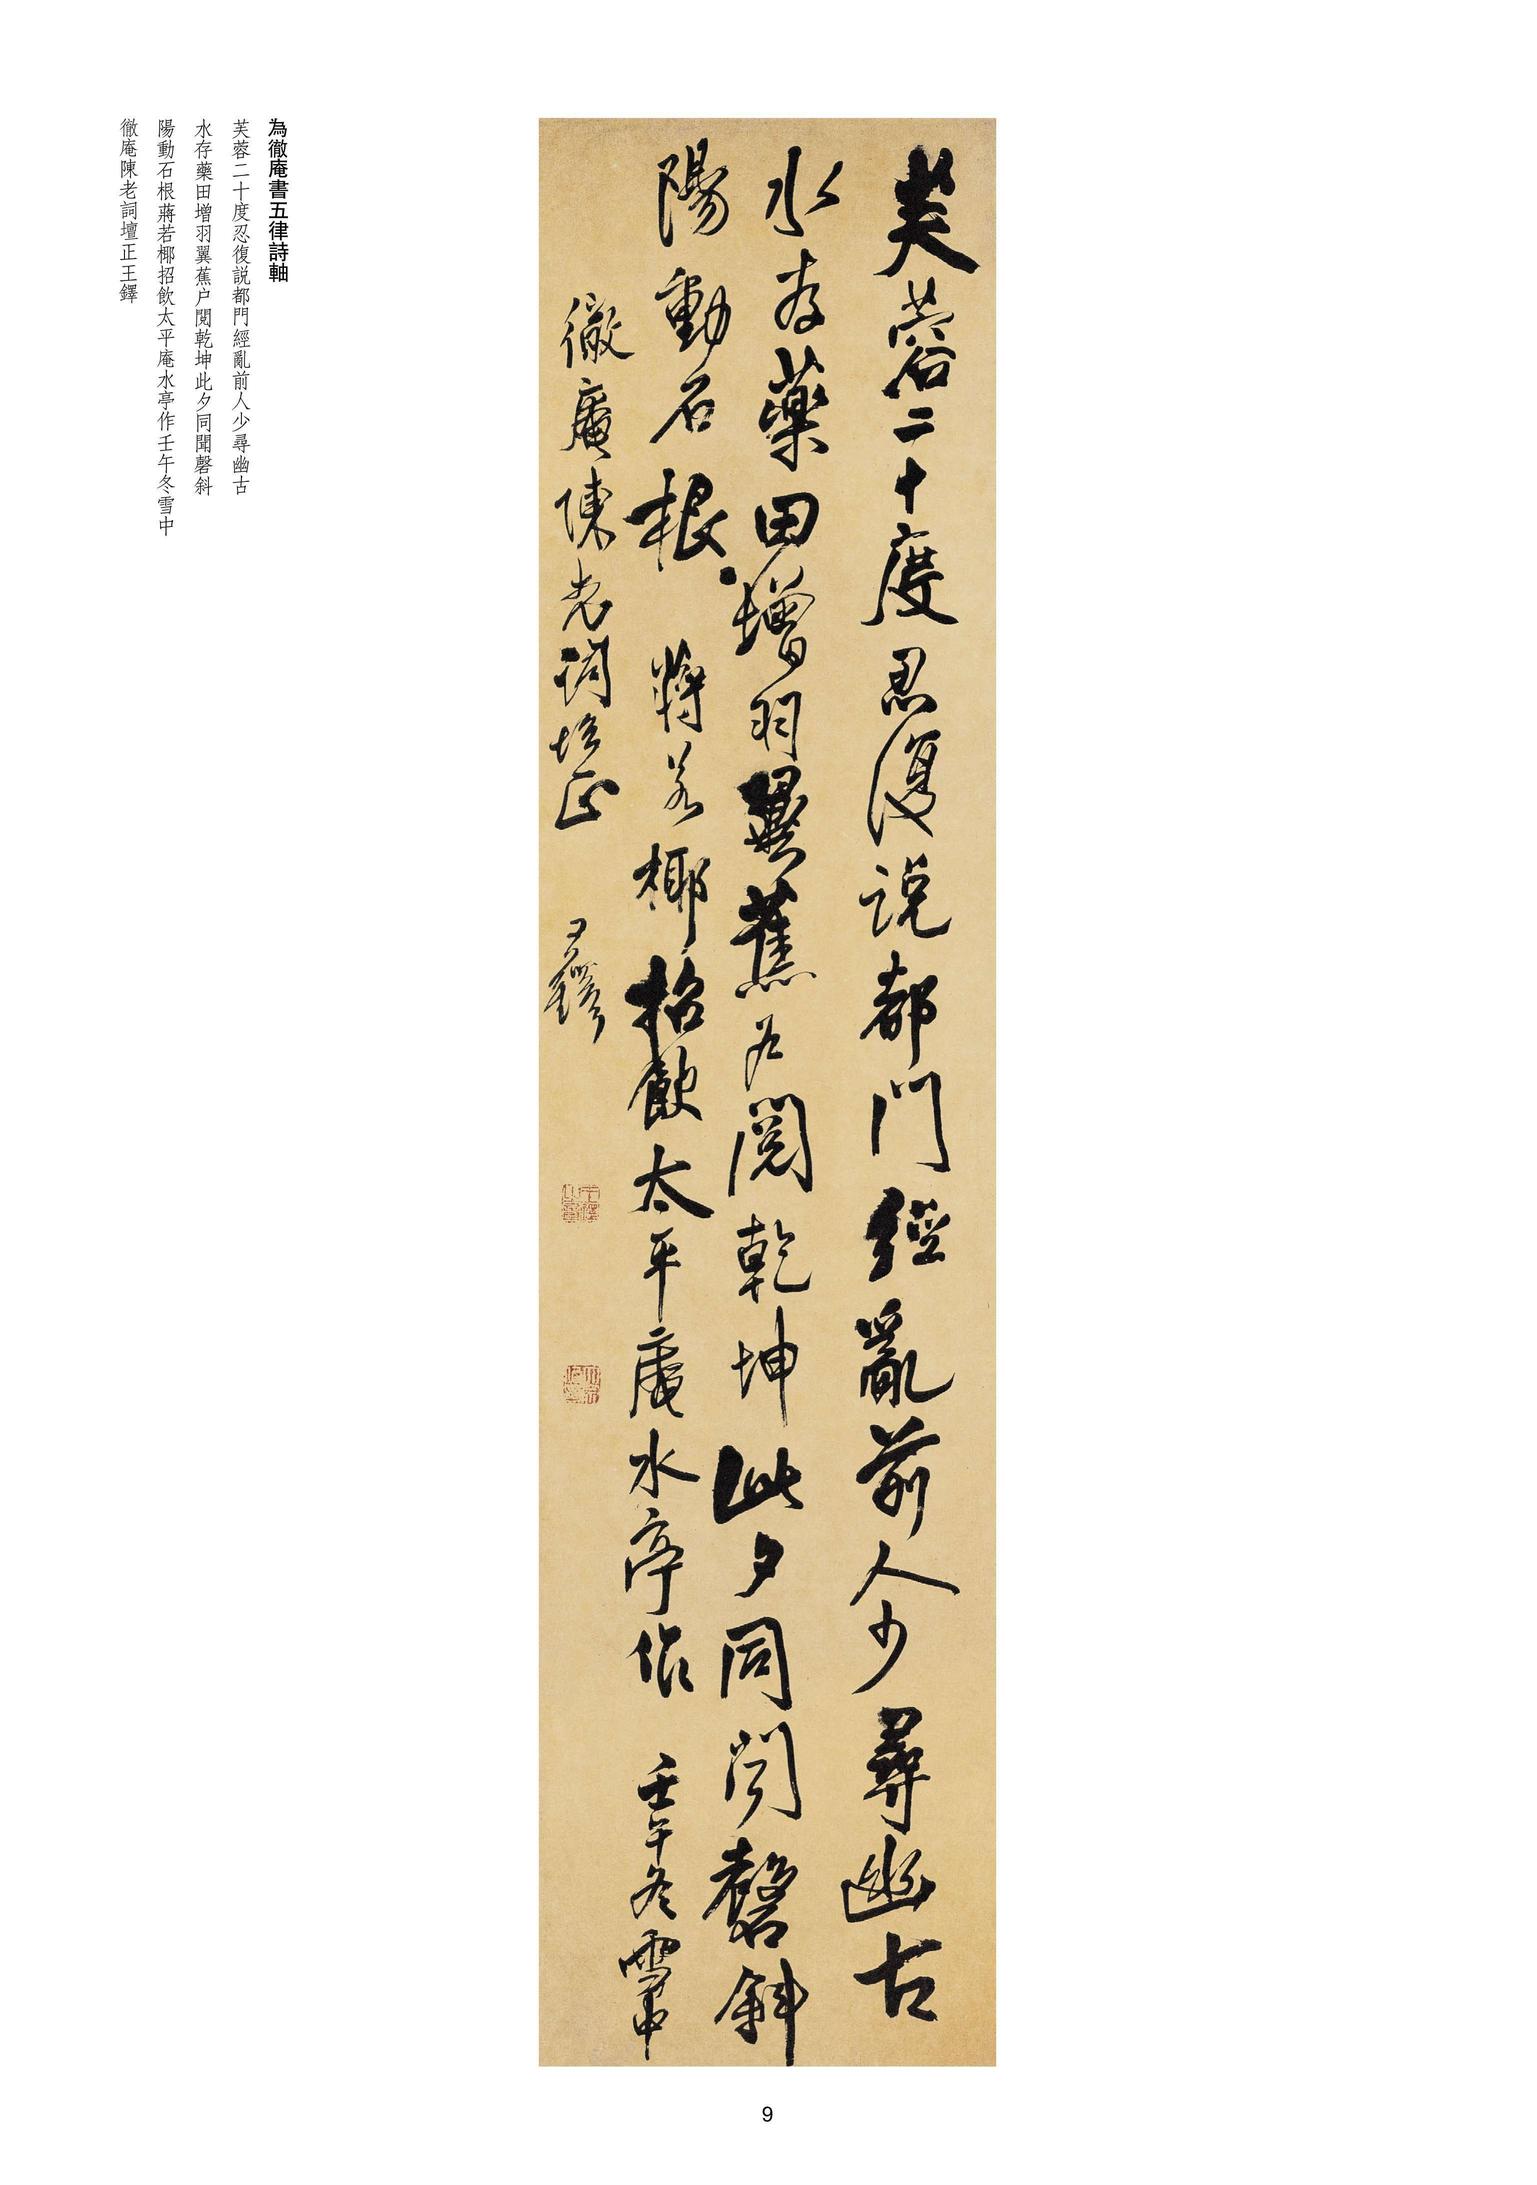 芙蓉二十度忍復説都門經亂前人少尋幽古
水存藥田增羽翼蕉户閲乾坤此夕同聞磬斜
陽動石根蔣若椰招飲太平庵水亭作壬午冬雪中
徹庵陳老詞壇正王鐸
為徹庵書五律詩軸
芙蓉二十度忍復説都門經亂前人少尋幽古
水存藥田增羽翼蕉户閲乾坤此夕同聞磬斜
陽動石根蔣若椰招飲太平庵水亭作壬午冬雪中
徹庵陳老詞壇正王鐸
9